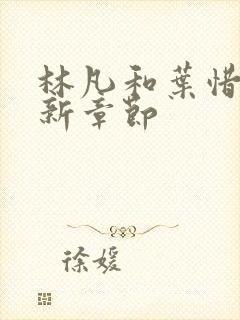 林凡和葉惜
新章節
徐媛